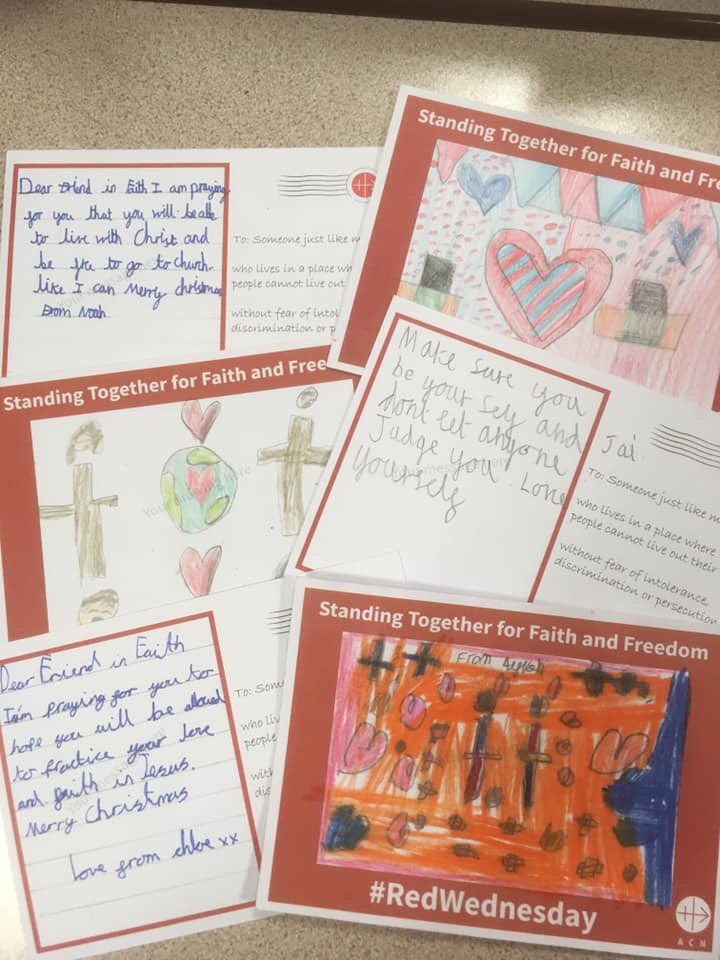 Dear Friend in Eaith I am praying
for you that you will be able
to live with Christ and
be fre to go to church
like I can Merry christmas
From Noah
To: Someone just like m
who lives in a place wh
people cannot live out
without fear of intol
discrimination or p
Standing Together for Faith and Fre
Standing Together for Faith and Free
Make sure you
be your self and
dont let anyone
Judge you. Love
yourself
Jai
To: Someone just like m
who lives in a place where
people cannot live out their
without fear of intolerance,
discrimination or persecution
Dear Eriend in Eaith
I'am praying for you to
hope you will be allowed
to practice your love
and faith in Jesus.
Merry Christmas
Love from chloe xx
To: Som
who liv
people
with
disc
Standing Together for Faith and Freedom
From
#RedWednesday
ACN